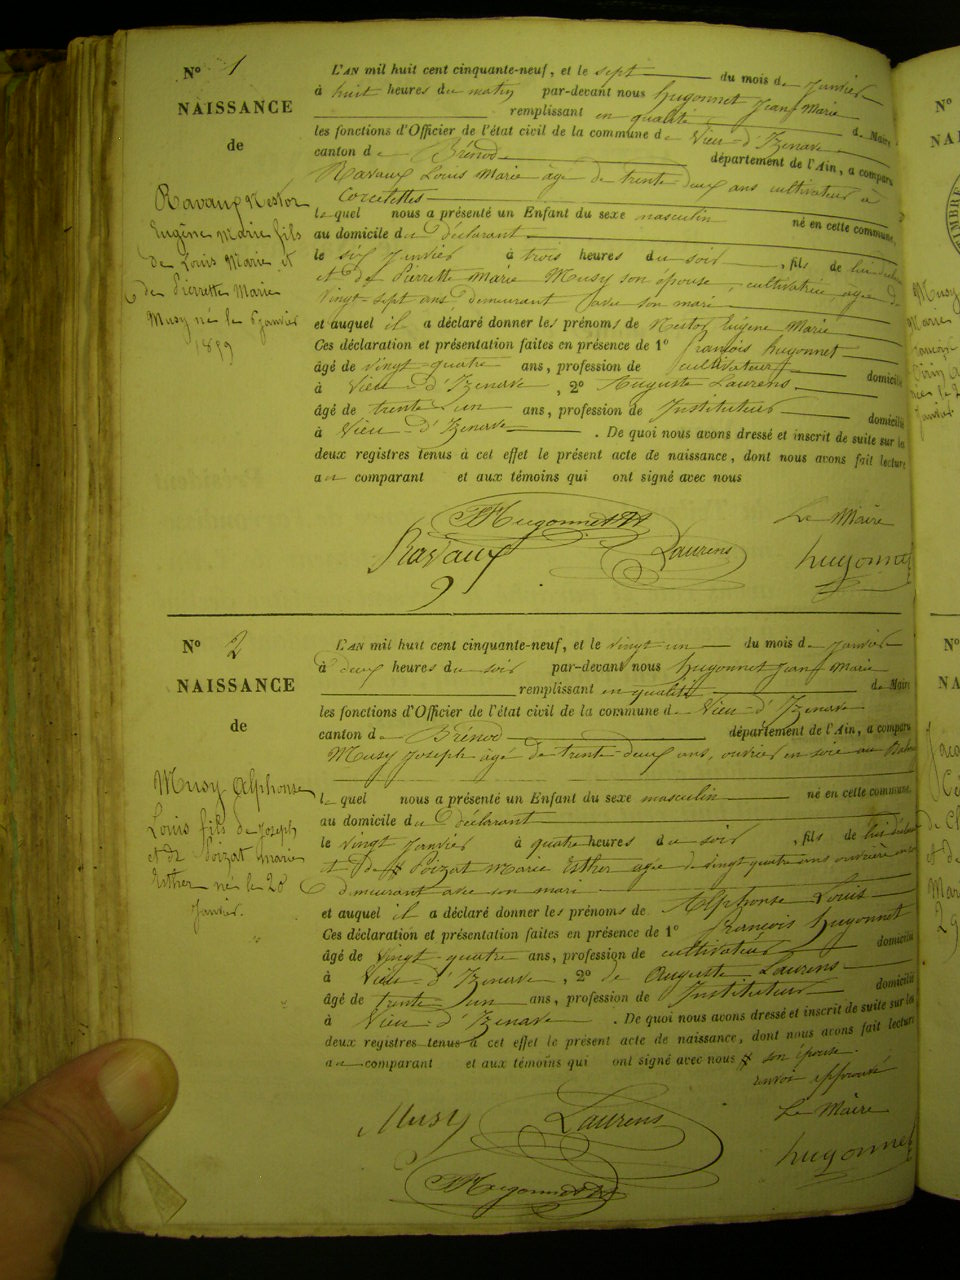 N° 1
NAISSANCE
de
Ravaux Nestor
Eugène Marie fils
de Louis Marie et
de Pierrette Marie
Musy né le 6 janvier
1859
L'AN mil huit cent cinquante-neuf, et le sept du mois de Janvier
à huit heures du matin par-devant nous Hugonnet Jean Marie
remplissant en qualité de Maire
les fonctions d'Officier de l'état civil de la commune de Vieu-d'Izenave
canton de Brénod département de l'Ain, a comparu
Ravaux Louis Marie âgé de trente deux ans cultivateur à
Corcelettes
lequel nous a présenté un Enfant du sexe masculin né en cette commune,
au domicile du déclarant
le six Janvier à trois heures du soir, fils de lui déclarant
et de Pierrette Marie Musy son épouse, cultivatrice, agée de
vingt sept ans demeurant avec son mari
et auquel il a déclaré donner les prénoms de Nestor Eugène Marie
Ces déclaration et présentation faites en présence de 1° François Hugonnet
âgé de vingt-quatre ans, profession de cultivateur domicilié
à Vieu-d'Izenave, 2° Auguste Laurens
âgé de trente un ans, profession de Instituteur domicilié
à Vieu-d'Izenave. De quoi nous avons dressé et inscrit de suite sur les
deux registres tenus à cet effet le présent acte de naissance, dont nous avons fait lecture
au comparant et aux témoins qui ont signé avec nous
Hugonnet
Le Maire
Ravaux
Laurens
hugonnet
N° 2
NAISSANCE
de
Musy Alphonse
Louis fils de Joseph
et de Poizat Marie
Esther né le 20
Janvier.
L'AN mil huit cent cinquante-neuf, et le vingt un du mois de Janvier
à deux heures du soir par-devant nous Hugonnet Jean Marie
remplissant en qualité de Maire
les fonctions d'Officier de l'état civil de la commune de Vieu-d'Izenave
canton de Brénod département de l'Ain, a comparu
Musy Joseph âgé de trente-deux ans, ouvrier en soie au
lequel nous a présenté un Enfant du sexe masculin né en cette commune,
au domicile du déclarant
le vingt Janvier à quatre heures du soir, fils de lui déclarant
et de Poizat Marie Esther agée de vingt quatre ans ouvrière
demeurant avec son mari
et auquel il a déclaré donner les prénoms de Alphonse Louis
Ces déclaration et présentation faites en présence de 1° François Hugonnet
âgé de vingt-quatre ans, profession de cultivateur domicilié
à Vieu-d'Izenave, 2° de Auguste Laurens
âgé de trente un ans, profession de Instituteur domicilié
à Vieu-d'Izenave. De quoi nous avons dressé et inscrit de suite sur les
deux registres tenus à cet effet le présent acte de naissance, dont nous avons fait lecture
au comparant et aux témoins qui ont signé avec nous son épouse.
renvoi approuvé
Musy
Laurens
Le Maire
hugonnet
Hugonnet